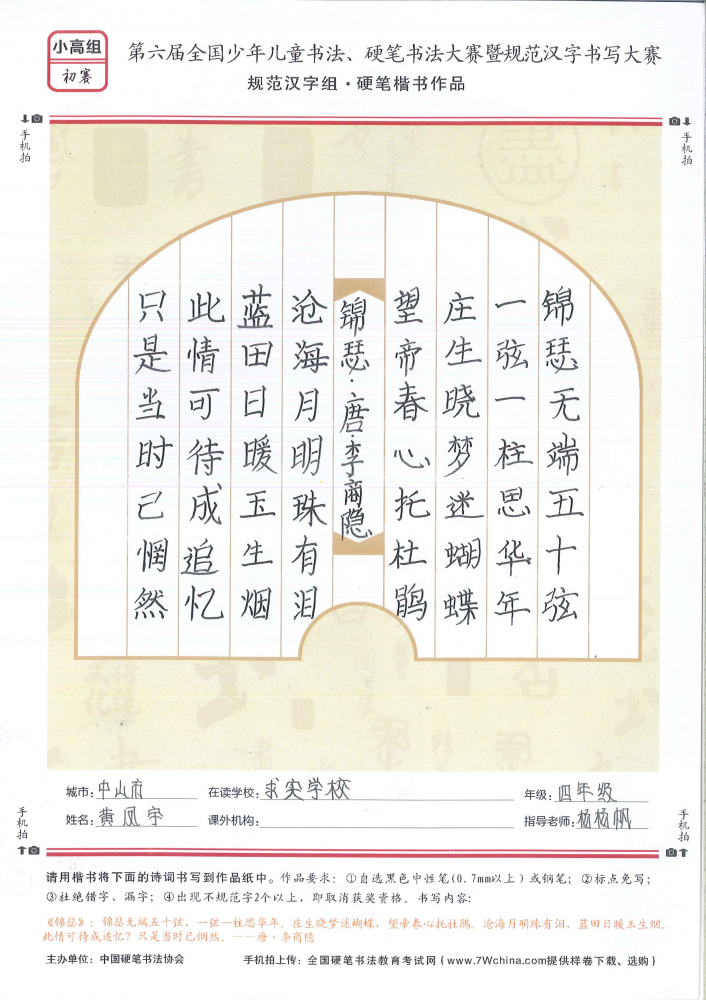 小高组
初赛
第六届全国少年儿童书法、硬笔书法大赛暨规范汉字书写大赛
规范汉字组·硬笔楷书作品
手机拍
手机拍
锦瑟无端五十弦
一弦一柱思华年
庄生晓梦迷蝴蝶
望帝春心托杜鹃
锦瑟·唐·李商隐
沧海月明珠有泪
蓝田日暖玉生烟
此情可待成追忆
只是当时已惘然
城市：中山市 在读学校：求实学校 年级：四年级
姓名：黄凤宇 课外机构： 指导老师：杨杨帆
手机拍
手机拍
请用楷书将下面的诗词书写到作品纸中。作品要求：①自选黑色中性笔(0.7mm以上)或钢笔；②标点免写；
③杜绝错字、漏字；④出现不规范字2个以上，即取消获奖资格。书写内容：
《锦瑟》：锦瑟无端五十弦，一弦一柱思华年。庄生晓梦迷蝴蝶，望帝春心托杜鹃。沧海月明珠有泪，蓝田日暖玉生烟。
此情可待成追忆？只是当时已惘然。——唐·李商隐
主办单位：中国硬笔书法协会 手机拍上传：全国硬笔书法教育考试网（www.7Wchina.com提供样卷下载、选购）